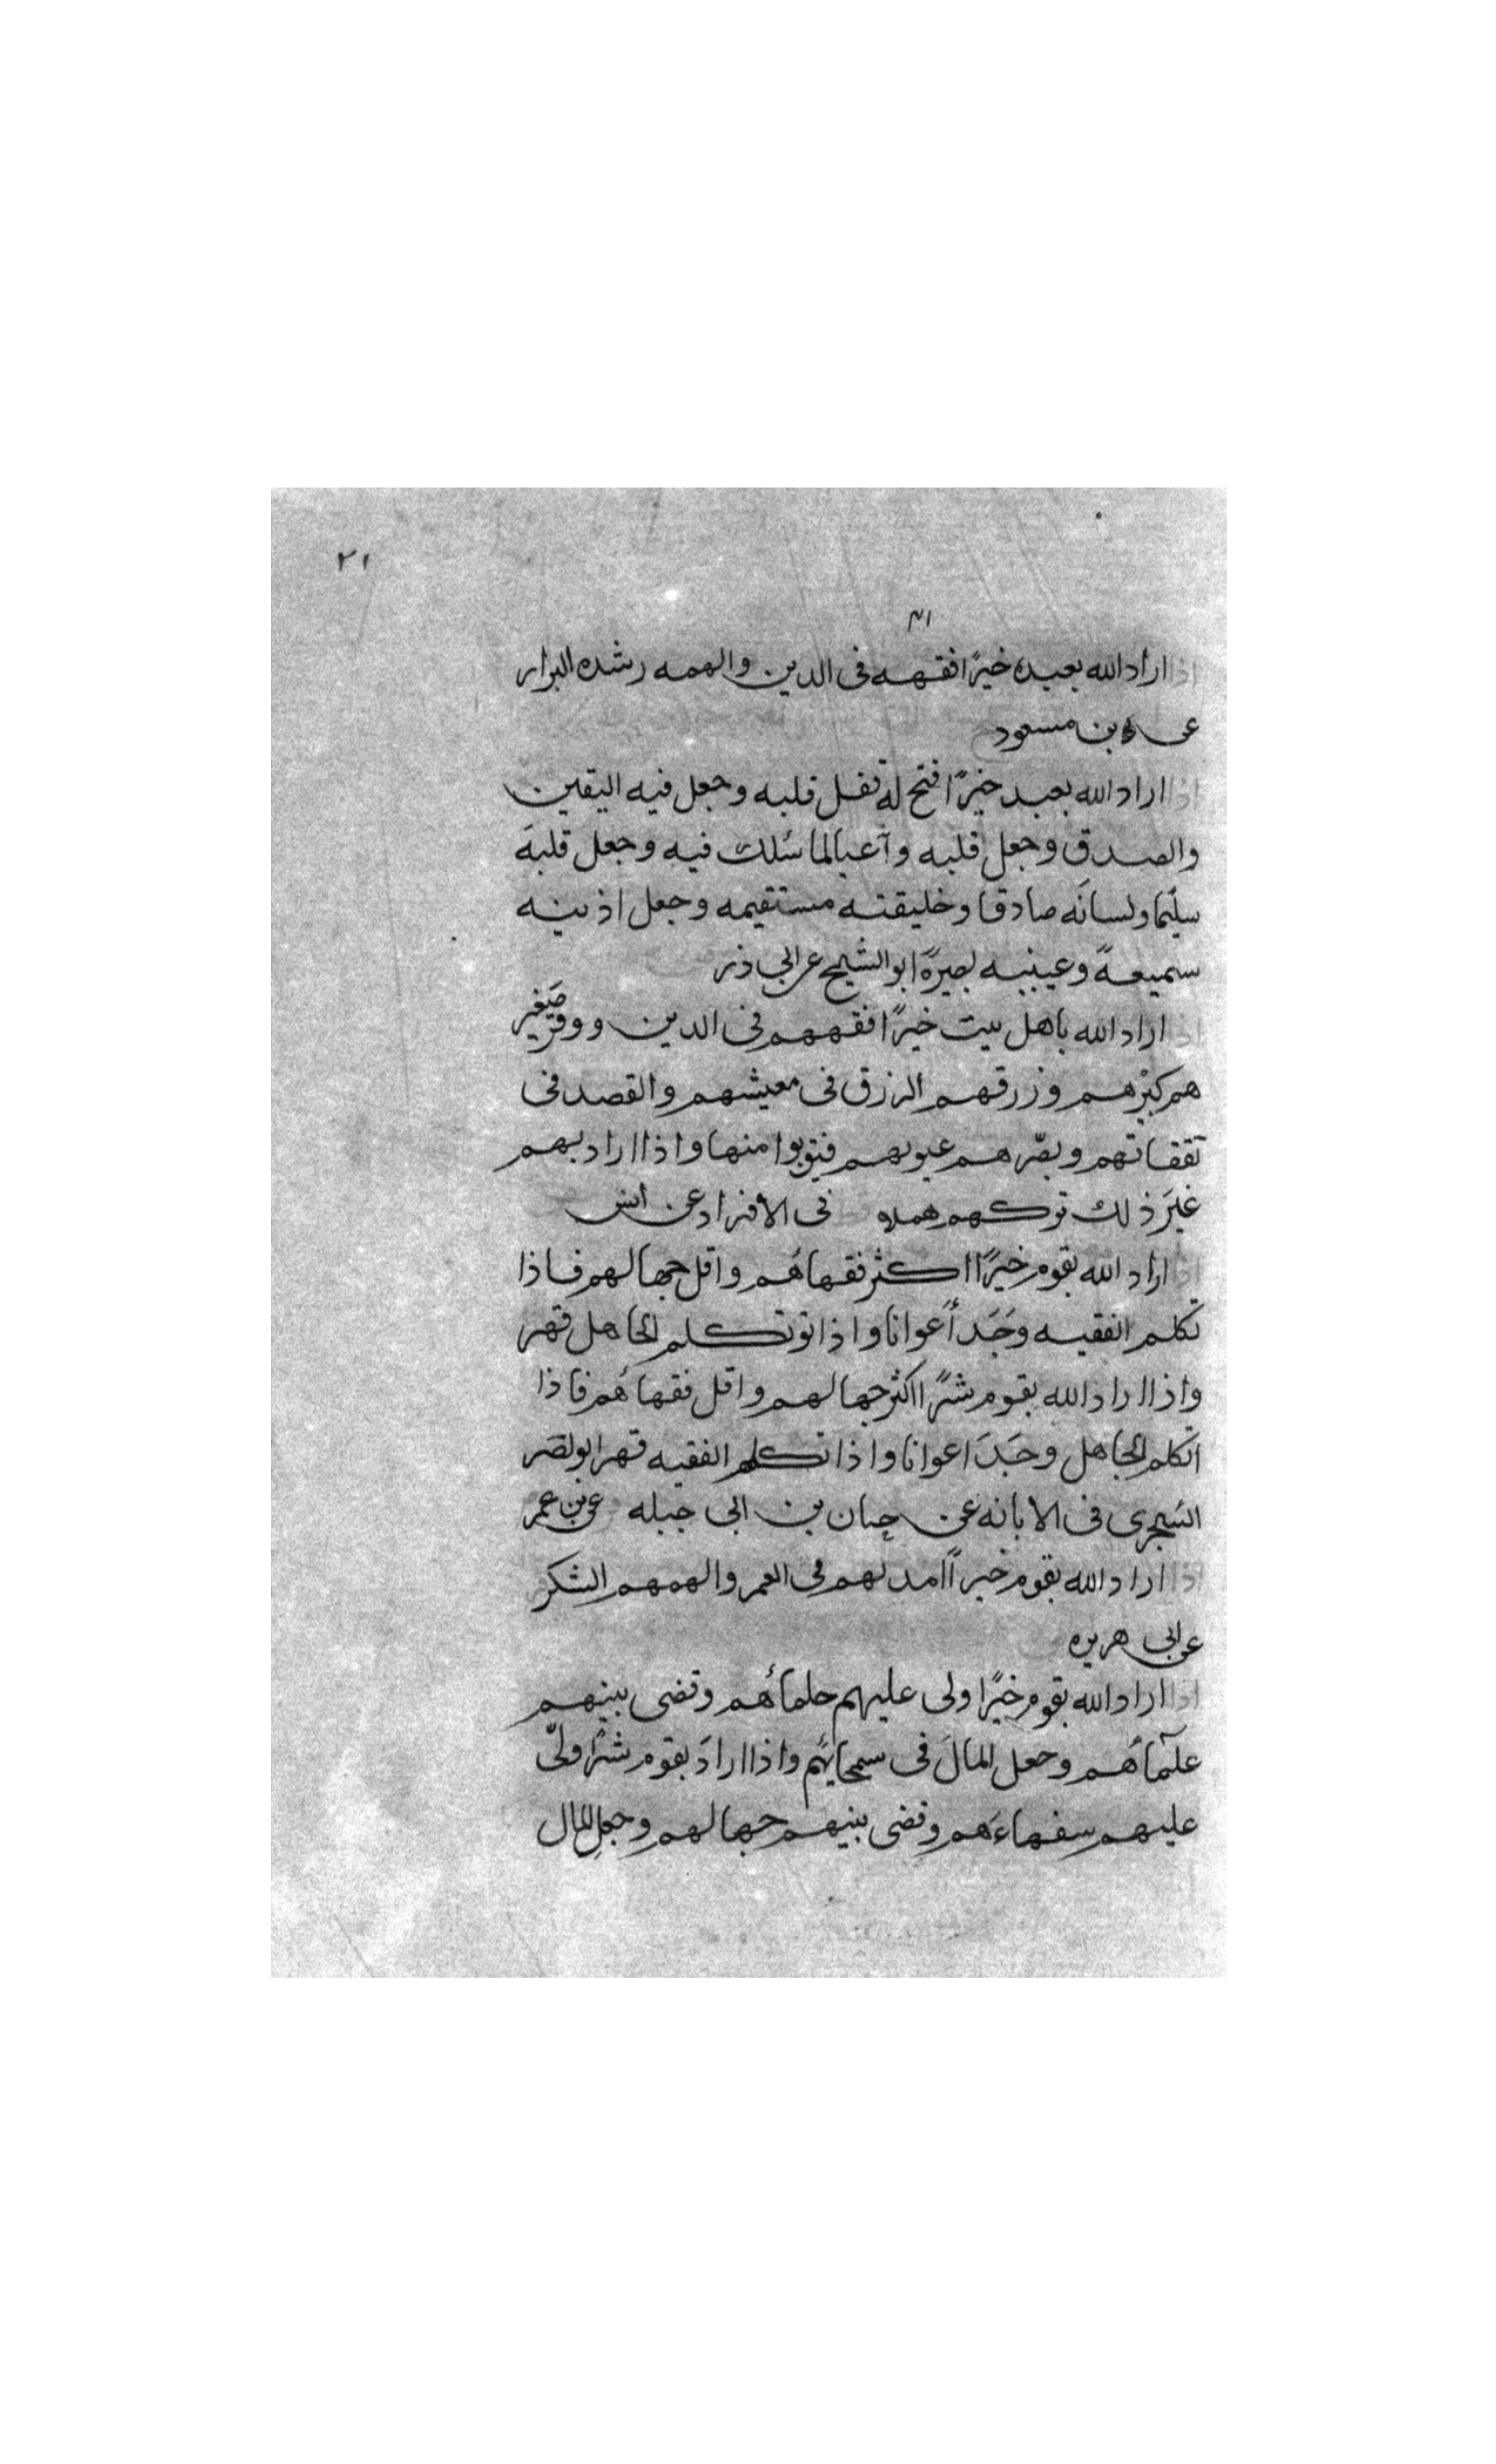 ٢١
٣١
اذا اراد الله بعبده خيرًا فقهه فى الدين والهمه رشده البزار
عن بن مسعود
اذا اراد الله بعبد خيرًا فتح له قفل قلبه وجعل فيه اليقين
والصدق وجعل قلبه وآعيا لما سُلك فيه وجعل قلبهَ
سليمًا ولسانَه صادقا وخليقته مستقيمه وجعل اذنيه
سميعةً وعينيه بصيرةً ابو الشيخ عن ابى ذر
اذا اراد الله باهل بيت خيرًا فقههم فى الدين ووقّر صَغير
هم كبيرَهم وزرقهم الرزق فى معيشهم والقصد فى
نفقاتهم وبصّرهم عيوبهم فيتوبوا منها واذا اراد بهم
غيَر ذلك تركهم هملا فى الافراد عن انس
اذا اراد الله بقوم خيرًا اكثر فقهاهُم واقل جهالهم فاذا
تكلم الفقيه وجَدَ أعوانا واذا توتكلم الجاهل قهر
واذا اراد الله بقوم شرًا اكثر جهالهم واقل فقهاهُم فاذا
اتكلم الجاهل وجَدَ اعوانا واذا تكلم الفقيه قهر ابو نصر
السجرى فى الابانه عن حبان بن ابى جبله عن بن عمر
اذا اراد الله بقوم خيرًا امد لهم فى العمر والهمهم الشكر
عن ابى هريره
اذا اراد الله بقوم خيرًا ولى عليهم حلمأهم وقضى بينهم
علمآهم وجعل المالَ فى سمحايهُم واذا ارادَ بقوم شرًا ولّى
عليهم سفهاءَهم وقضى بينهم جهالهم وجعل المال